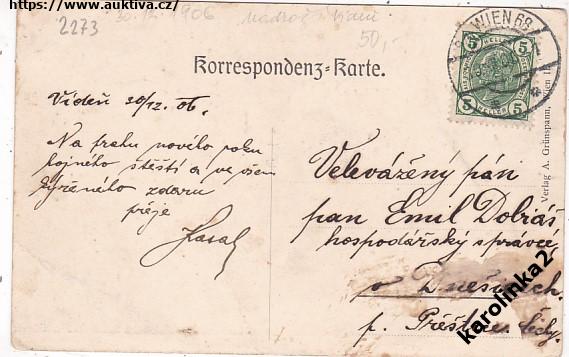 https://www.auktiva.cz/
30.12.1906
2273
50,-
WIEN 68
5 5
5 5
Korrespondenz-Karte.
Vídeň 30/12. 06.
Na prahu nového roku
hojného štěstí a ve všem
zdaru
přeje
Velevážený pán
pan Emil Dobiáš
hospodářský správce
v
p. Přeštice Čechy.
Verlag A. Grünspann, Wien
karolinka2